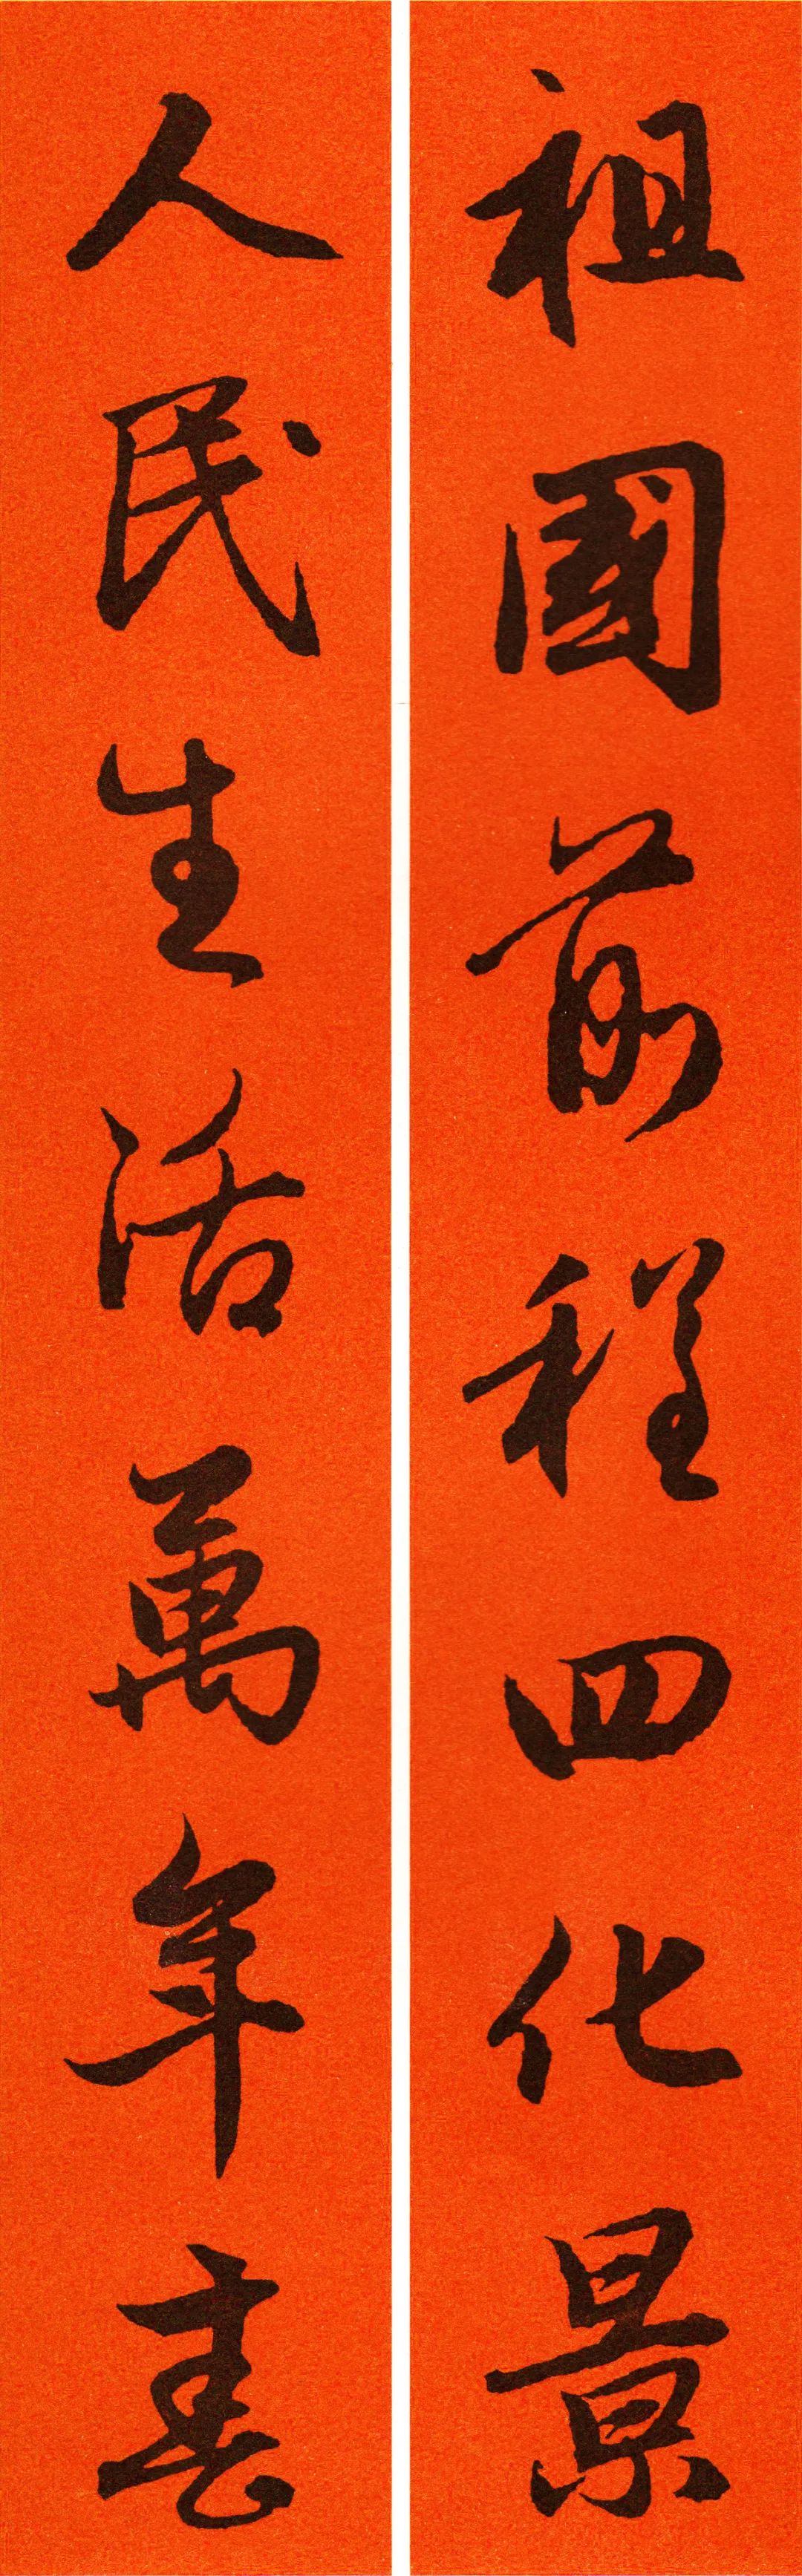 祖國前程四化景
人民生活萬年春